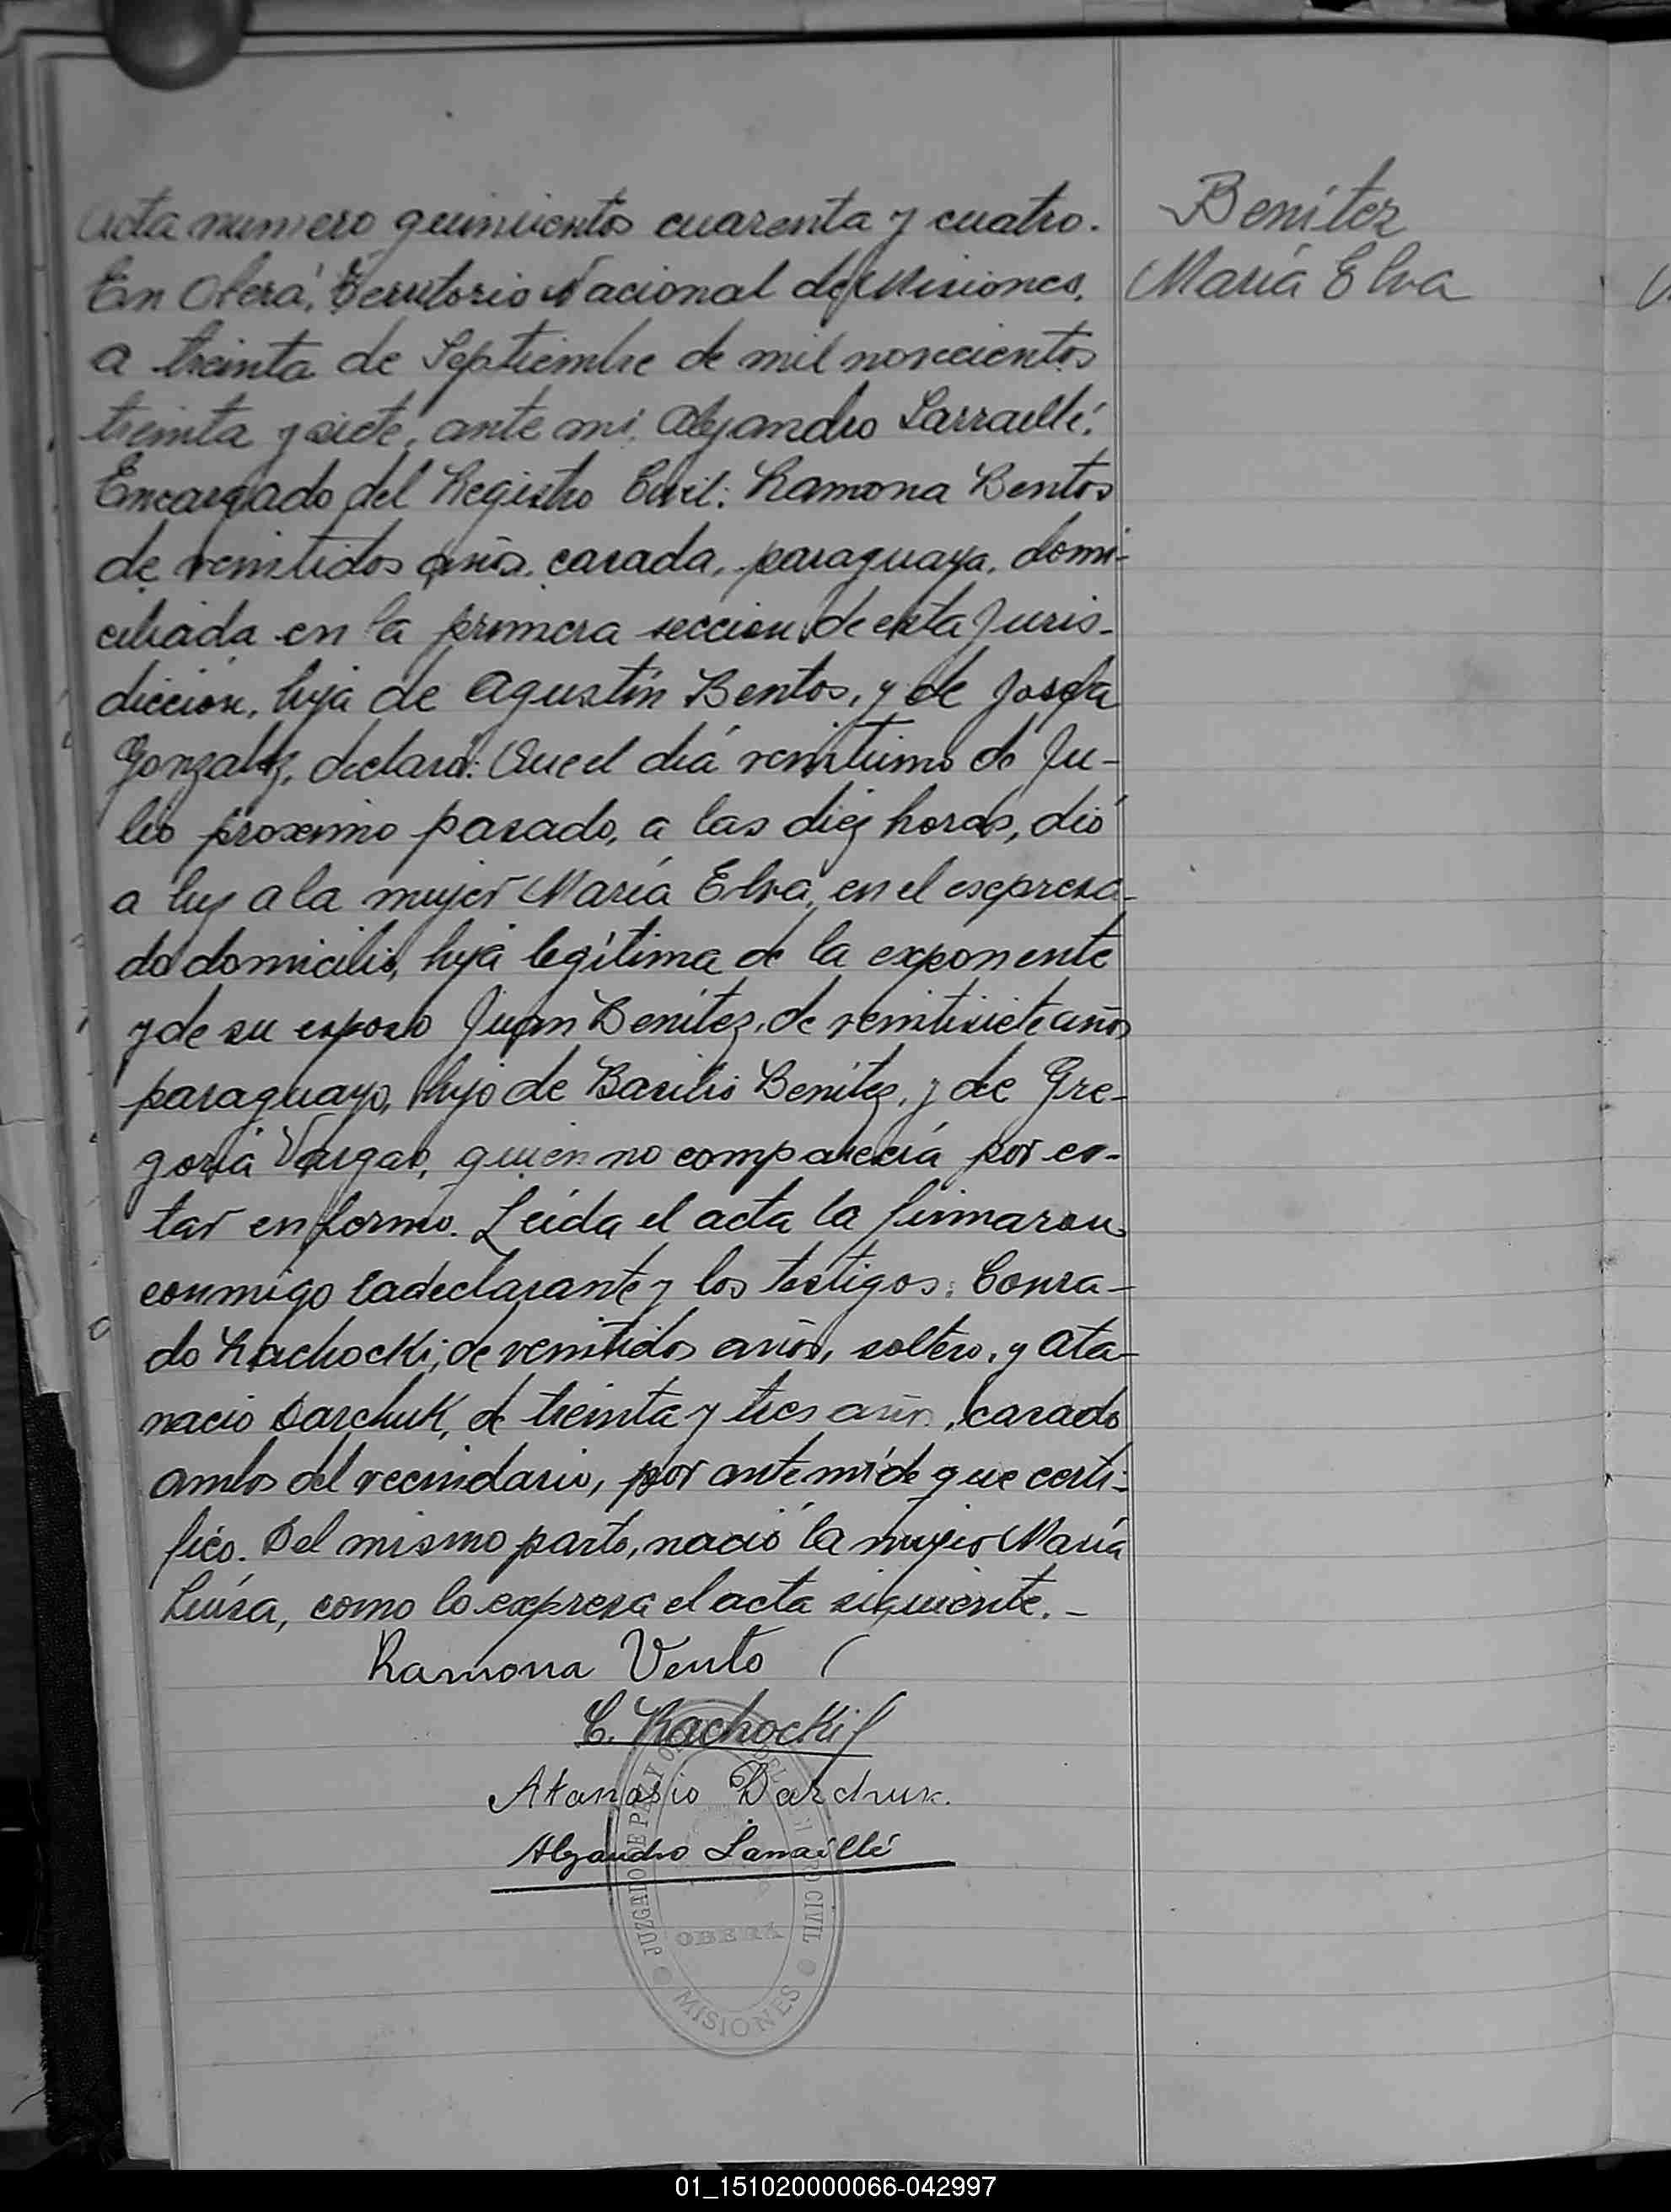 Acta numero quinientos cuarenta y cuatro.
En Oberá, Territorio Nacional de Misiones,
a treinta de Septiembre de mil novecientos
treinta y siete, ante mí, Alejandro Larraillé,
Encargado del Registro Civil: Ramona Bentos
de veintidos años, casada, paraguaya, domi-
ciliada en la primera seccion de esta Juris-
diccion, hija de Agustín Bentos, y de Josefa
Gonzalez, declaró: Que el diá veintiuno de Ju-
lio proximo pasado, a las diez horas, dió
a luz a la mujer María Elva, en el expresa-
do domicilio, hija legítima de la exponente
y de su esposo Juan Benítez, de veintisiete años
paraguayo, hijo de Basilio Benítez, y de Gre-
goria Vargas, quien no comparecía por es-
tar enfermo. Leida el acta la firmaron
conmigo la declarante y los testigos: Conra-
do Rachocki, de veintidos años, soltero, y Ata-
nacio Darchuk, de treinta y tres años, casado
ambos del vecindario, por ante mí de que certi-
fico. Del mismo parto, nació la mujer María
Luísa, como lo expresa el acta siguiente.-
Ramona Vento
C. Rachocki
Atanasio Darchuk.
Alejandro Larraillé
JUZGADO DE PAZ Y
CIVIL
OBERÁ
MISIONES
Benítez
María Elva
01_151020000066-042997